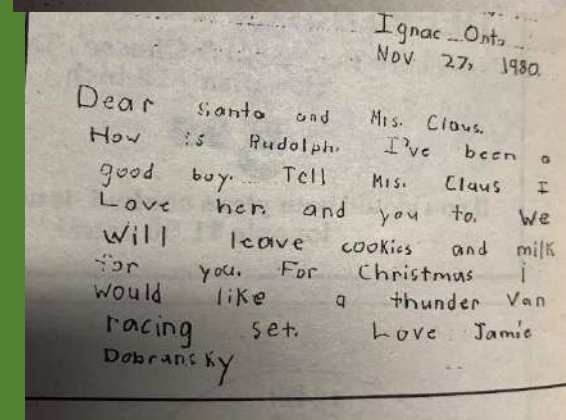 Ignac Onto
Nov 27, 1980.
Dear Santa and Mrs. Claus.
How is Rudolph. I've been a
good boy. Tell Mrs. Claus I
Love her. and you to. We
Will leave cookies and milk
for you. For Christmas i
would like a thunder Van
racing set. Love Jamie
Dobransky